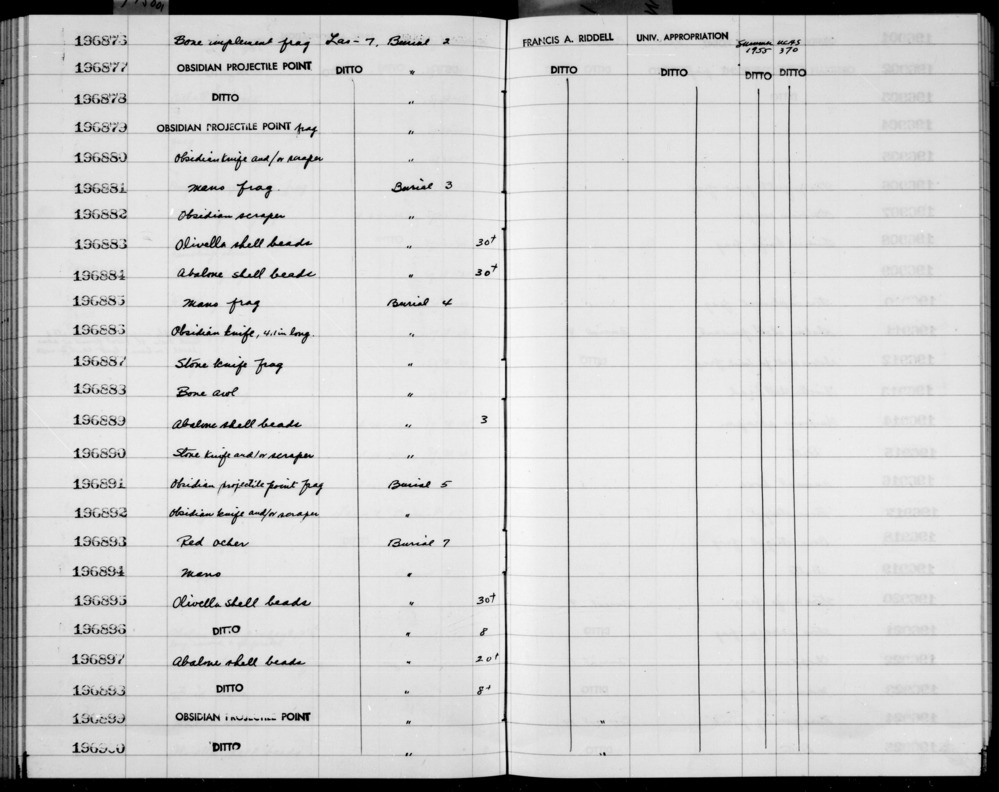 196876 Bone implement frag Las-7, Burial 2 FRANCIS A. RIDDELL UNIV. APPROPRIATION Summer 1955 UCAS 370
196877 OBSIDIAN PROJECTILE POINT DITTO " DITTO DITTO DITTO DITTO
196878 DITTO "
196879 OBSIDIAN PROJECTILE POINT frag "
196880 Obsidian knife and/or scraper "
196881 Mano frag. Burial 3
196882 Obsidian scraper "
196883 Olivella shell beads " 30+
196884 Abalone shell beads " 30+
196885 Mano frag Burial 4
196886 Obsidian knife, 4.1 in long. "
196887 Stone knife frag "
196888 Bone awl "
196889 Abalone shell beads " 3
196890 Stone knife and/or scraper "
196891 Obsidian projectile point frag Burial 5
196892 Obsidian knife and/or scraper "
196893 Red ocher Burial 7
196894 Mano "
196895 Olivella shell beads " 30+
196896 DITTO " 8
196897 Abalone shell beads " 20+
196898 DITTO " 8+
196899 OBSIDIAN PROJECTILE POINT " "
196900 DITTO " "